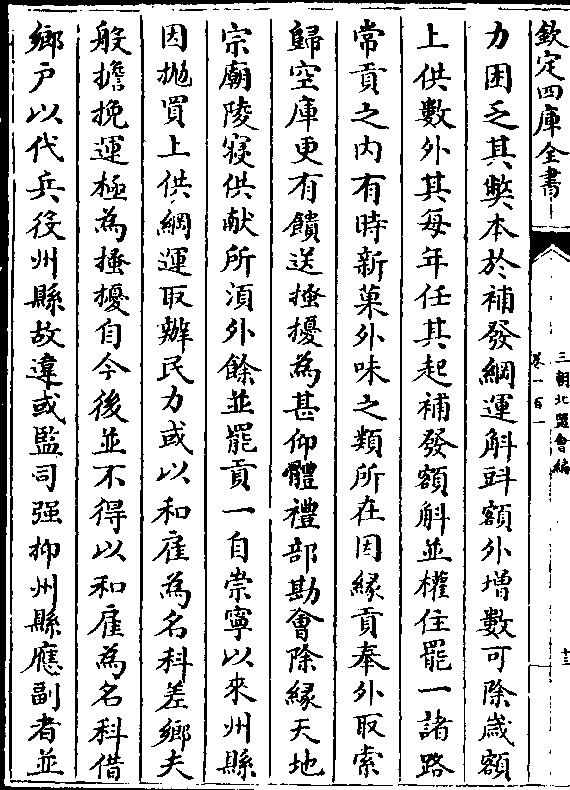 欽定四庫全書
三朝北盟會編
卷一百一
十三
力困乏其弊本於補發綱運斛㪷額外増數可除歳額
上供數外其每年任其起補發額斛並權住罷一諸路
常貢之内有時新菓外味之類所在因縁貢奉外取索
歸空庫更有饋送搔擾為甚仰體禮部勘會除縁天地
宗廟陵寢供献所湏外餘並罷貢一自崇寧以來州縣
因抛買上供綱運取辦民力或以和雇為名科差鄉夫
般擔挽運極為搔擾自今後並不得以和雇為名科借
鄉戸以代兵役州縣故違或監司强抑州縣應副者並